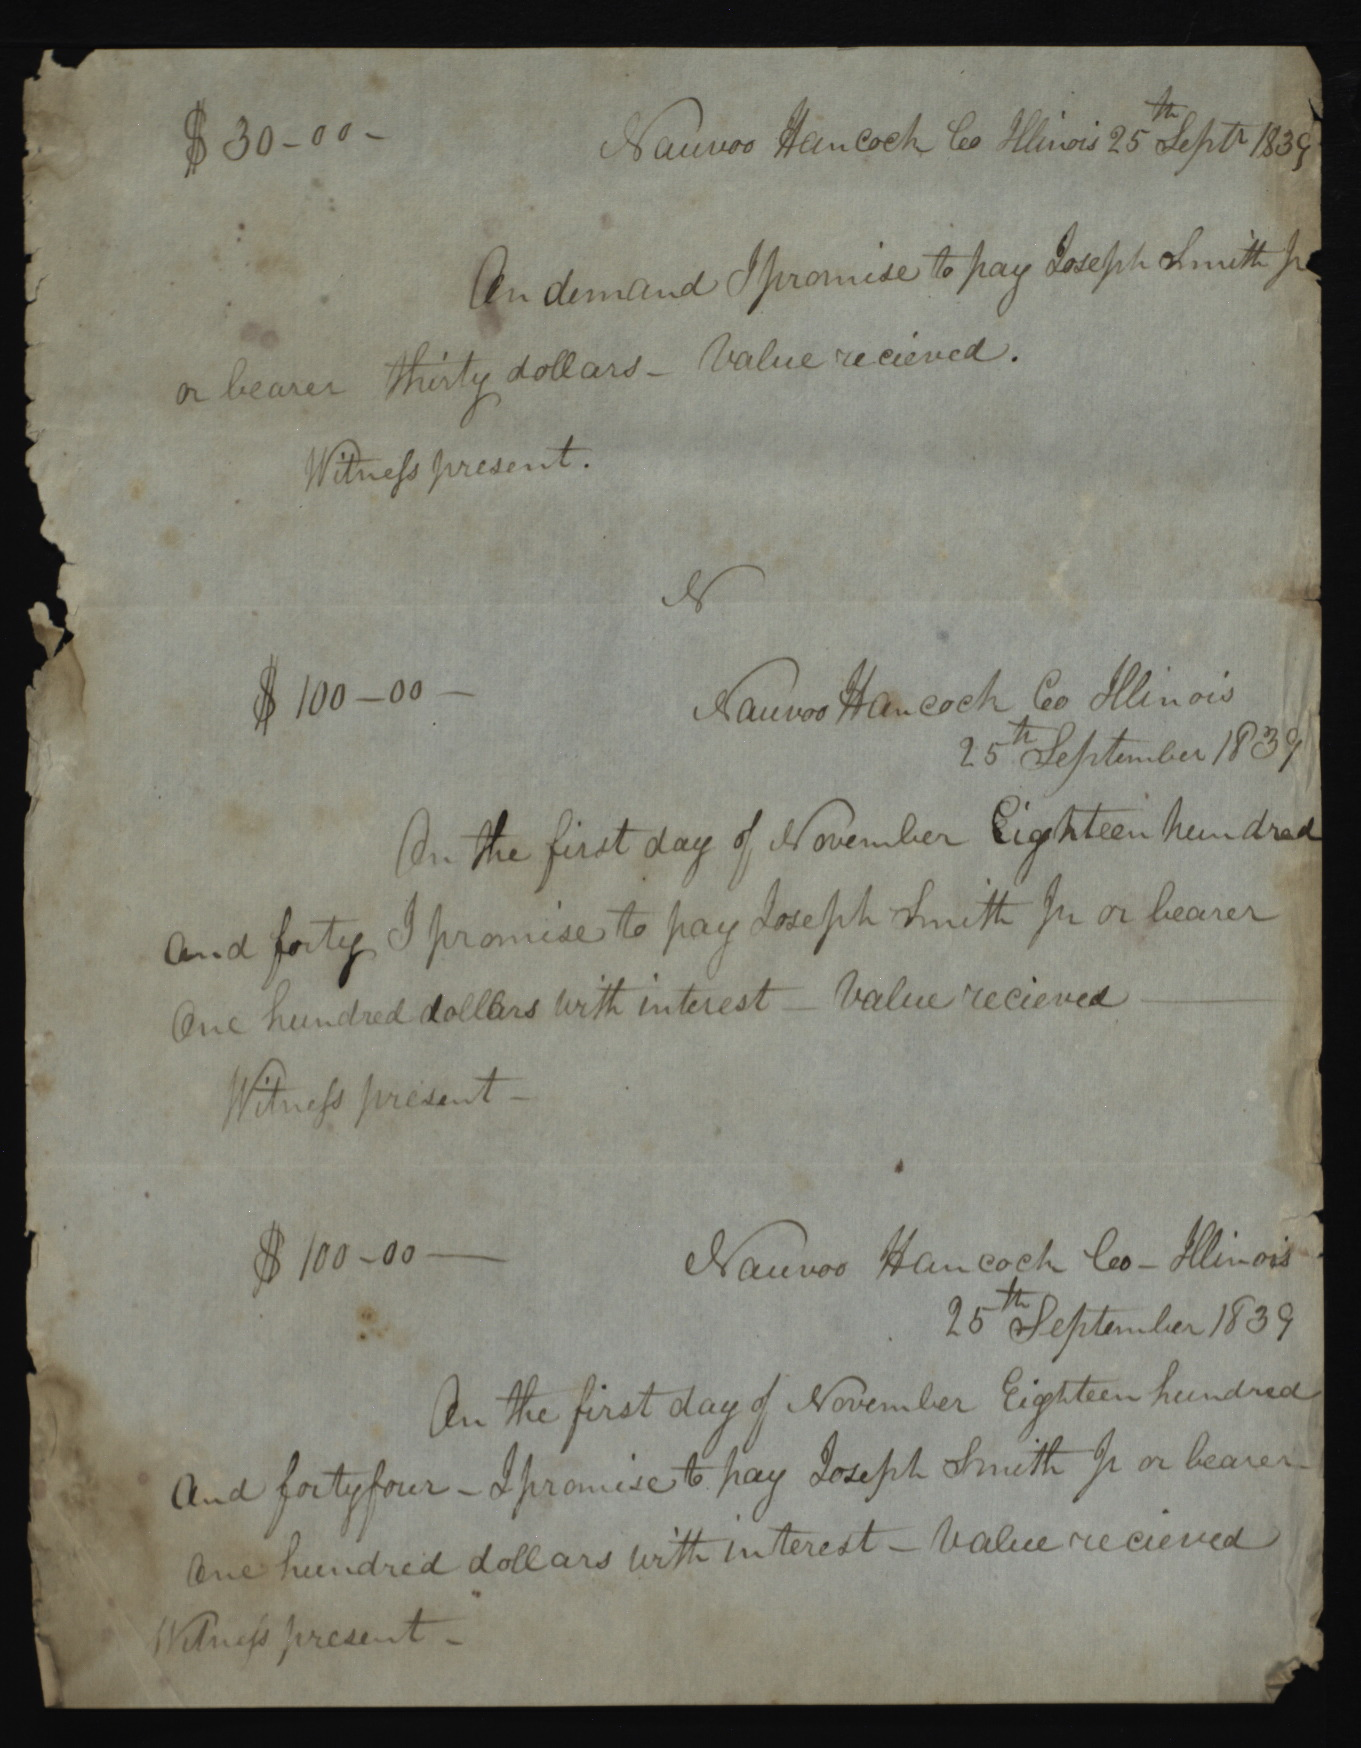 $30-00-
Nauvoo Hancock Co Illinois 25th Septr 1839
On demand I promise to pay Joseph Smith Jr
or bearer thirty dollars - Value recieved.
Witness present.
N
$100-00-
Nauvoo Hancock Co Illinois
25th September 1839
On the first day of November Eighteen hundred
and forty I promise to pay Joseph Smith Jr or bearer
One hundred dollars with interest - Value recieved
Witness present -
$100-00-
Nauvoo Hancock Co - Illinois
25th September 1839
On the first day of November Eighteen hundred
and forty four - I promise to pay Joseph Smith Jr or bearer
One hundred dollars with interest - Value recieved
Witness present -